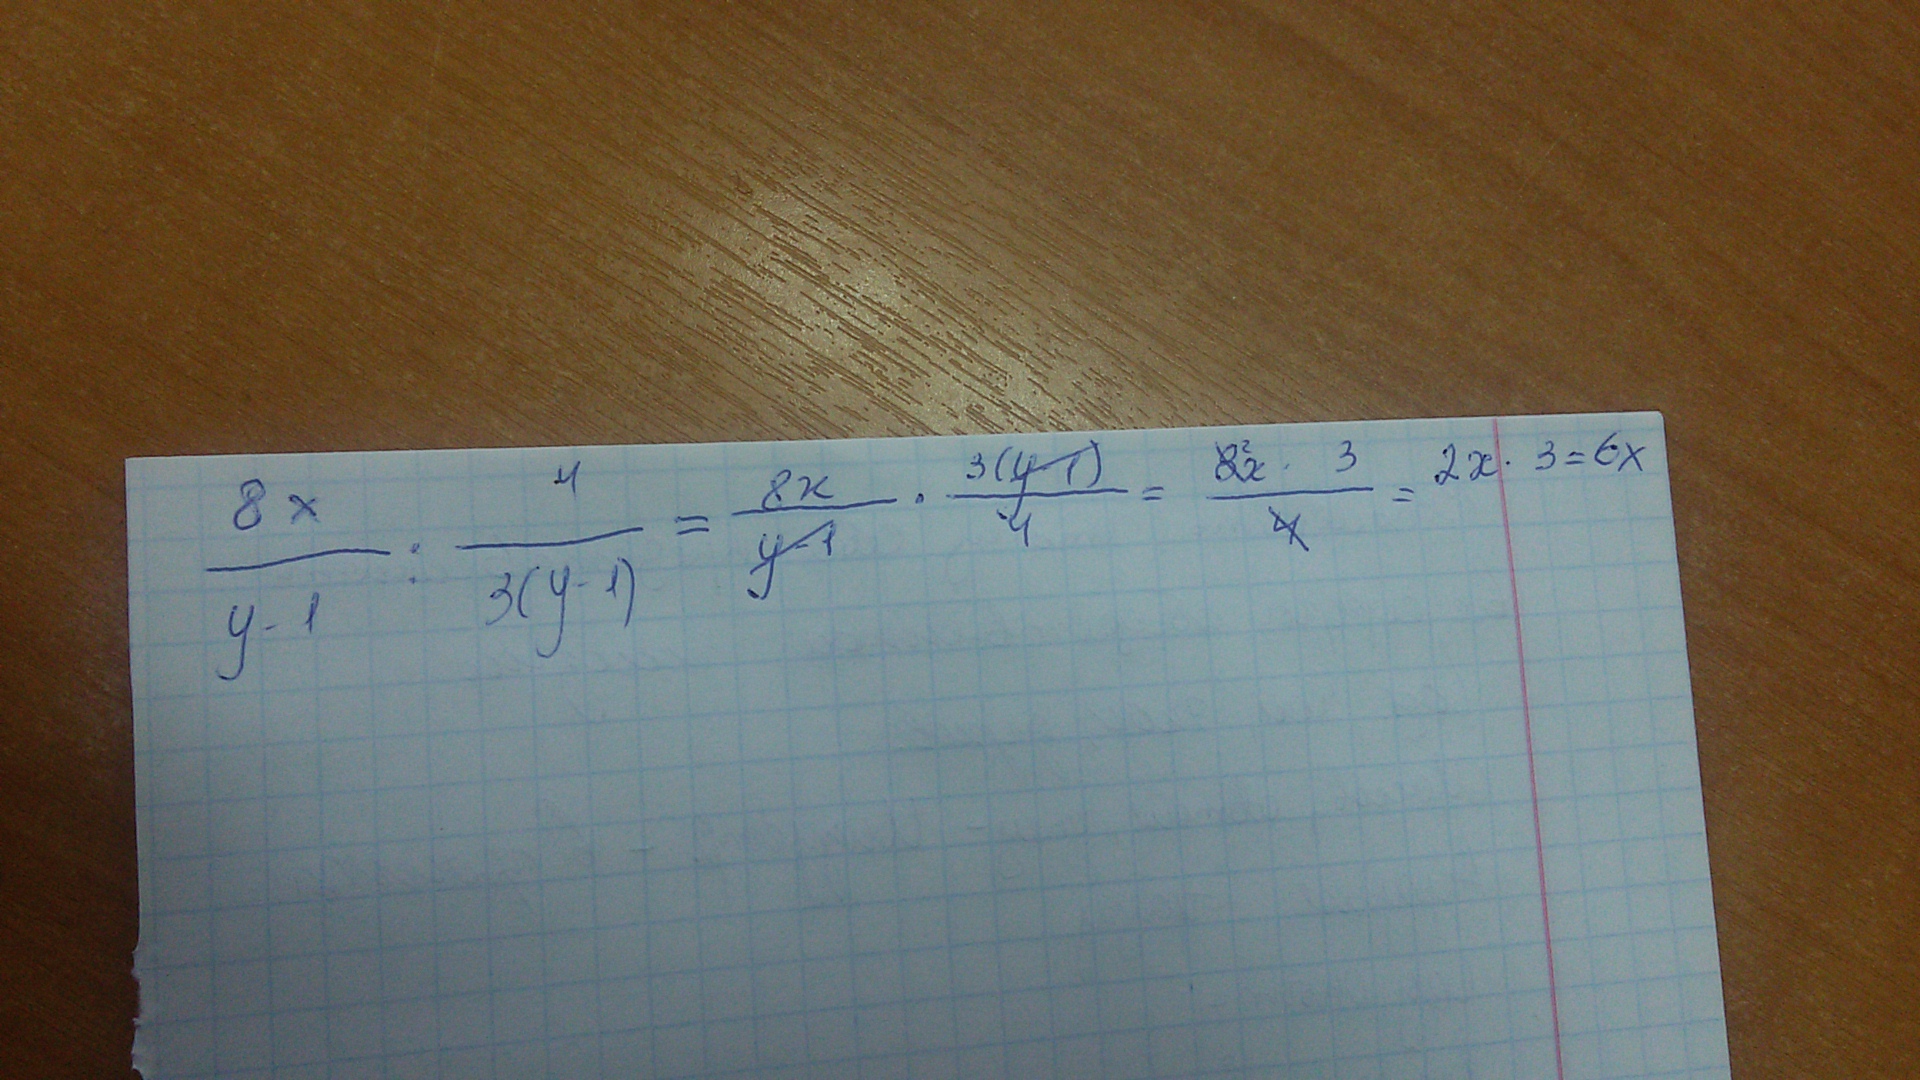 8x/(y-1) : 4/(3(y-1)) = 8x/(y-1) · 3(y-1)/4 = 8²x · 3/4 = 2x · 3 = 6x